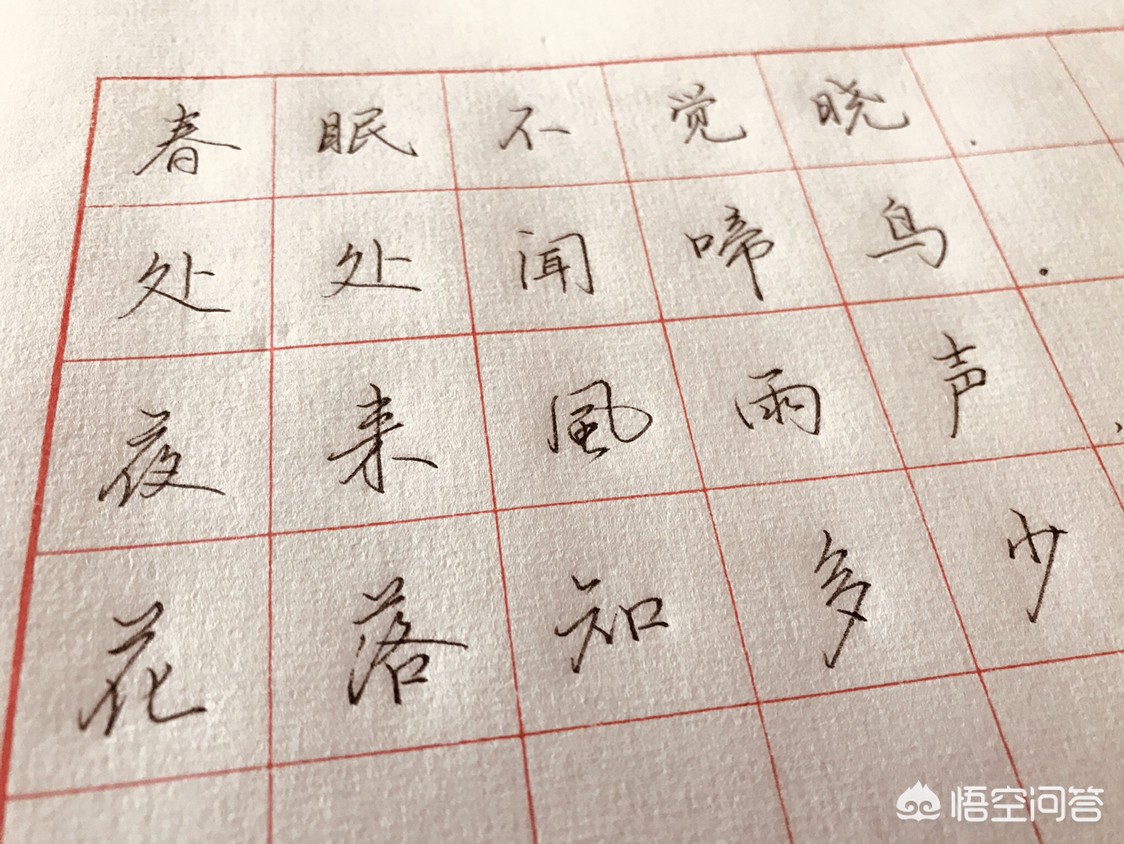 春眠不觉晓.
处处闻啼鸟.
夜来風雨声.
花落知多少
悟空问答